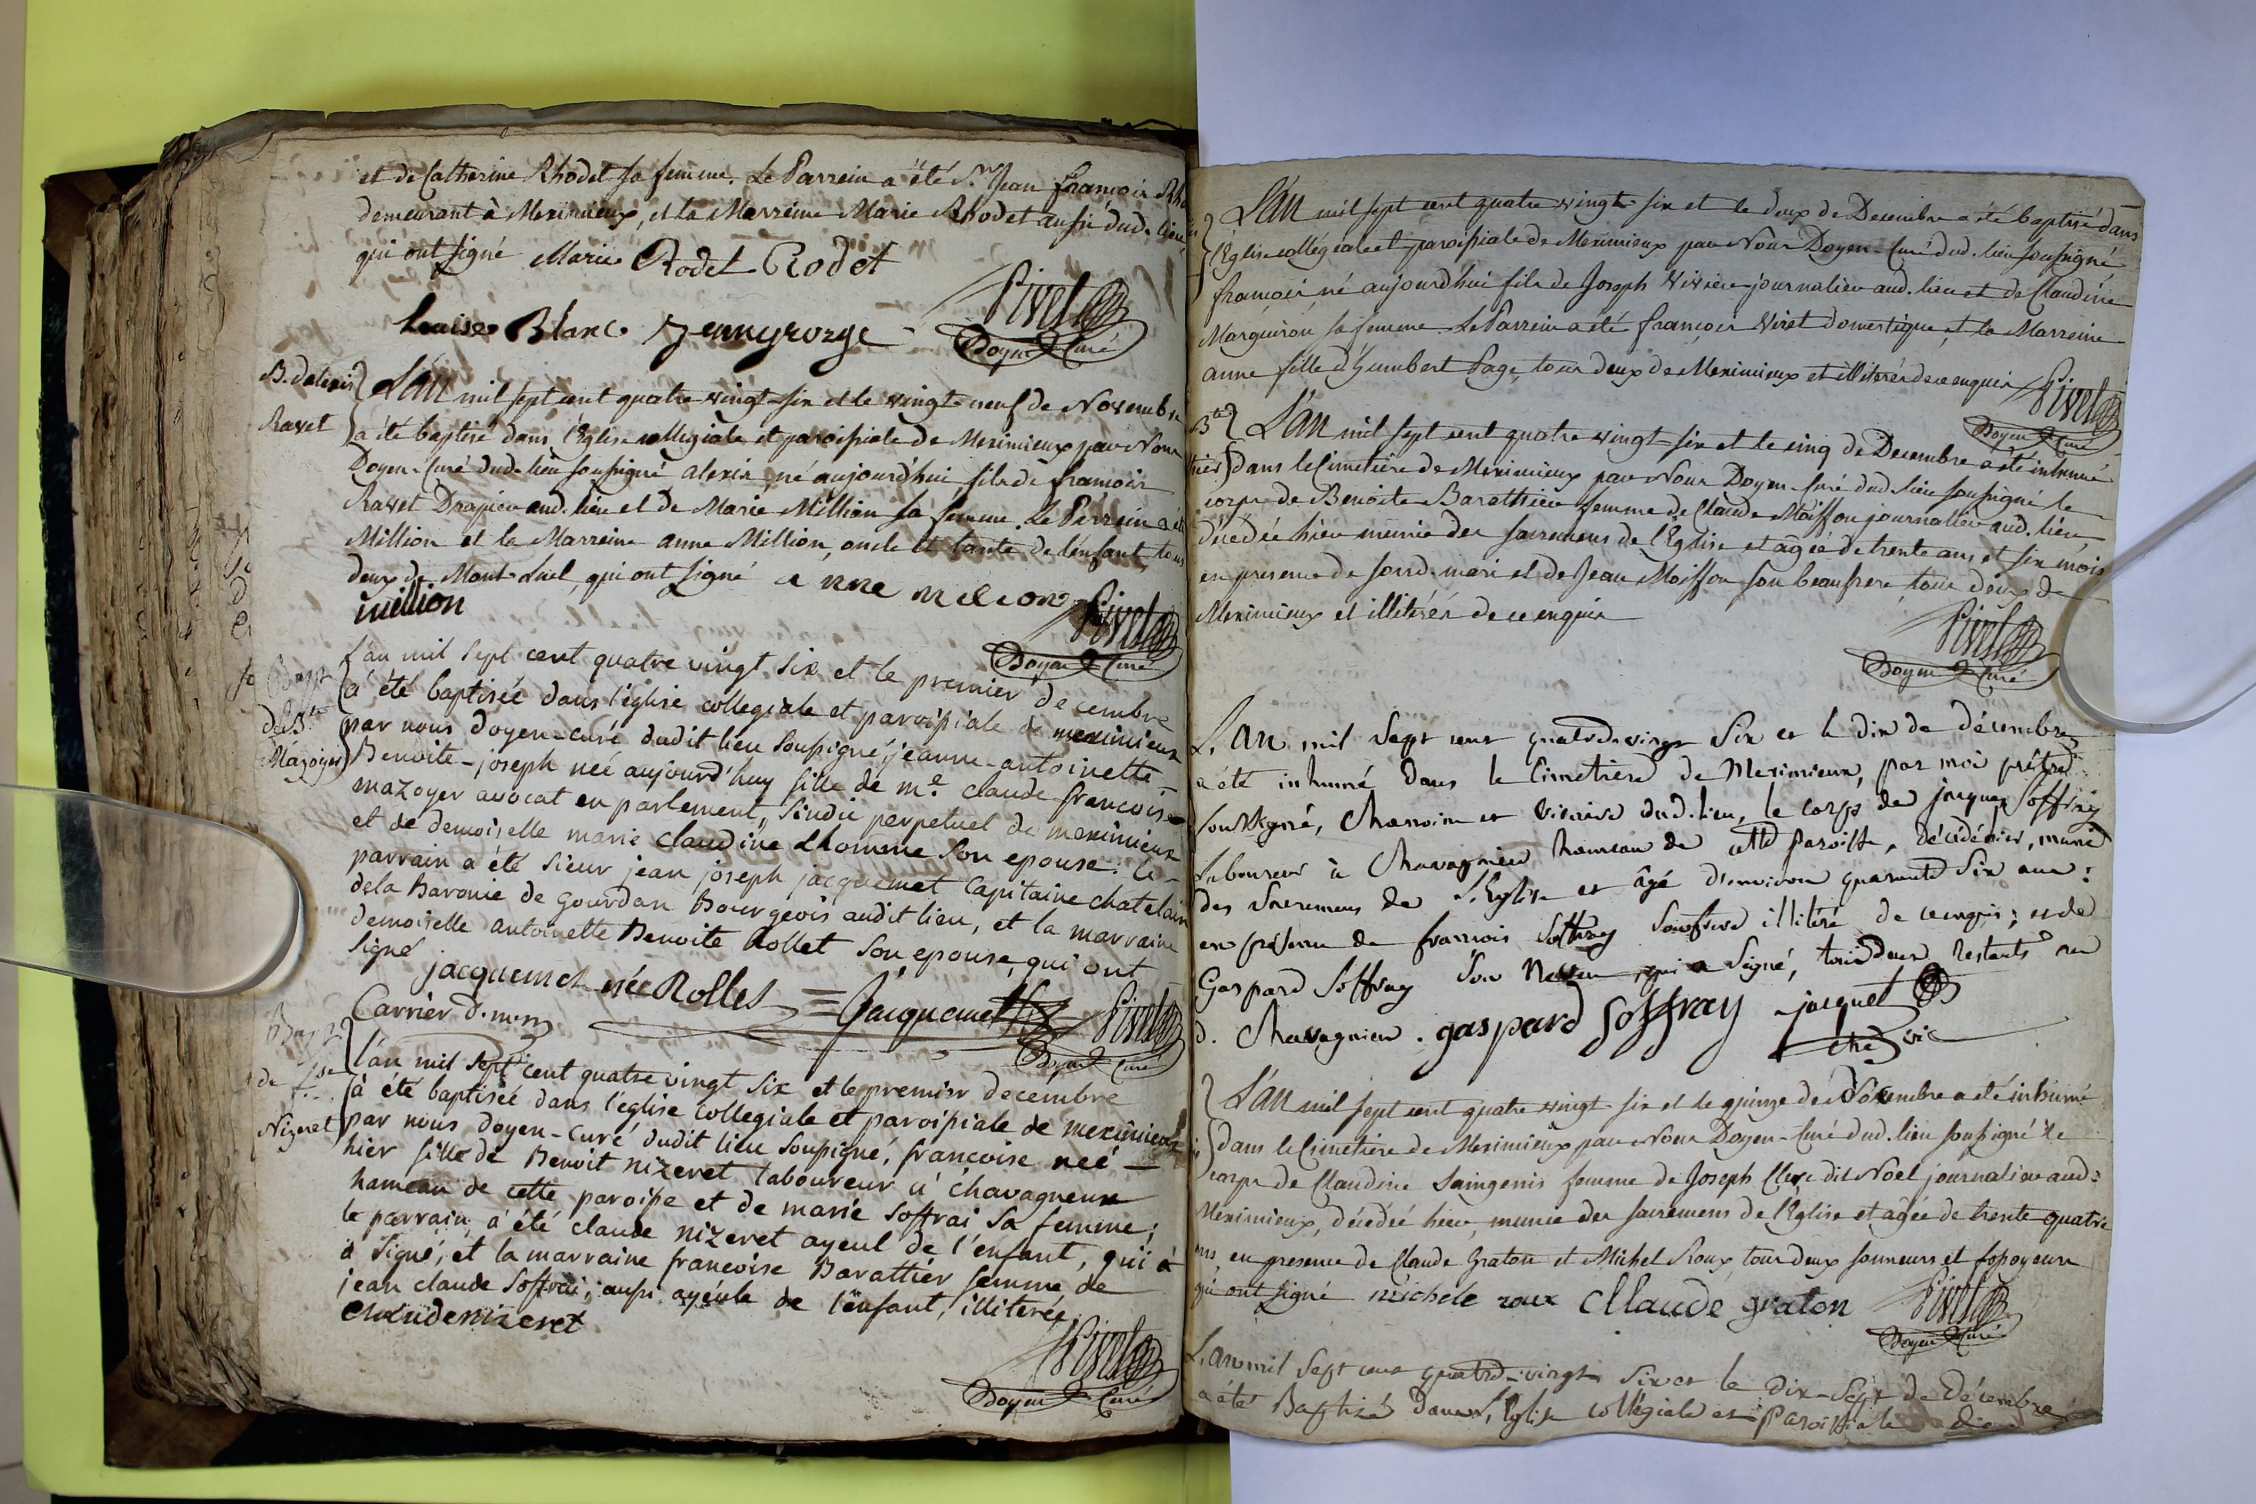 et de Catherine Rhodet sa femme. Le Parrein a été Sr. Jean françois
demeurant à Meximieux, et la Marreine Marie Rhodet aussi dud. lieu
qui ont signé Marie Rodet Rodet
Louise Blanc Jenny rozge
Pivet
Doyen Curé
B. d'alexis
Ravet
L'an mil sept cent quatre vingt-six et le vingt neuf de Novembre
a été baptisé dans l'Eglise collegiale et paroissiale de Meximieux par Nous
Doyen-Curé dud. lieu soussigné alexis né aujourd'hui fils de françois
Ravet Drapier aud. lieu et de Marie Million sa femme. Le Perrein a été
Million et la Marreine anne Million, oncle et tante de l'enfant, tous
deux de Mont-Luel, qui ont signé anne milion
million
Pivet
Doyen Curé
Bapt
de Bte
Mazoyer
l'an mil sept cent quatre vingt six et le premier decembre
a été baptisée dans l'église collegiale et paroissiale de meximieux
par nous doyen-curé dudit lieu soussigné, jeanne-antoinette
Benoite-joseph neé aujourd'huy fille de me. claude francois
mazoyer avocat en parlement, sindic perpetuel de meximieux
et de demoiselle marie claudine Lhomme son epouse. le
parrain a été sieur jean joseph jacquemet Capitaine chatelain
dela Baronie de Gourdan Bourgeois audit lieu, et la marraine
demoiselle antoinette Benoite Rollet son epouse, qui ont
signé
jacquemet née Rollet Jacquemet
Carrier
Pivet
Doyen Curé
Bapt
de fse
Nizeret
l'an mil sept cent quatre vingt six et le premier decembre
à été baptisée dans l'église collegiale et paroissiale de meximieux
par nous doyen-curé dudit lieu soussigné, francoise neé
hier fille de Benoit nizeret laboureur à chavagneux
hameau de cette paroisse et de marie soffrai sa femme;
le parrain à été claude nizeret ayeul de l'enfant, qui à
à signé, et la marraine francoise Barattier femme de
jean claude soffrai, aussi ayeule de l'enfant, illiterée
claude nizeret
Pivet
Doyen Curé
L'An mil sept cent quatre vingt-six et le deux de Decembre a été baptisé dans
l'Eglise collégiale et paroissiale de Meximieux par Nous Doyen-Curé dud. lieu soussigné
françois né aujourd'hui fils de Joseph Vivier journalier aud. lieu et de Claudine
Marguiron sa femme. Le Parrein a été françois Viret domestique, et la Marreine
anne fille d'humbert Page, tous deux de Meximieux et illiterés de ce enquis
Pivet
Doyen Curé
Bte
L'An mil sept cent quatre vingt-six et le cinq de Decembre a été inhumé
dans le Cimetière de Meximieux par Nous Doyen-Curé dud. lieu soussigné le
corps de Benoite Barathier femme de Claude Moiffon journalier aud. lieu
décédée hier munie des sacremens de l'Eglise et agée de trente ans et six mois
en presence de sond. mari et de Jean Moiffon son beaufrere, tous deux de
Meximieux et illiterés de ce enquis
Pivet
Doyen Curé
L'An mil sept cent quatre-vingt six et le dix de décembre
a été inhumé dans le Cimetiere de Meximieux, par moi prêtre
soussigné, Chanoine et Vicaire dud. lieu, le corps de jacques Soffray
laboureur à Chavagnieu hameau de cette paroisse, décédé hier, muni
des Sacremens de l'Eglise et âgé d'environ quarante six ans:
en présence de francois Soffray Son frere illitéré de ce enquis; et de
Gaspard Soffray Son Neveu, qui a Signé, tous deux restants au
d. Chavagnieu. gaspard Soffray jacquet
che vic
L'An mil sept cent quatre vingt-six et le quinze de Décembre a été inhumé
dans le Cimetière de Meximieux par Nous Doyen-Curé dud. lieu soussigné le
corps de Claudine Saingenis femme de Joseph Clerc dit Noël journalier aud.
Meximieux, décédée hier, munie des sacremens de l'Eglise et agée de trente quatre
ans, en presence de Claude Graton et Michel Roux tous deux sonneurs et fossoyeurs
qui ont signé michele roux Cllaude graton
Pivet
Doyen Curé
L'an mil sept cent quatre-vingt six et le dix-sept de Décembre
a été Baptisé dans L'Eglise collégiale et Paroissiale